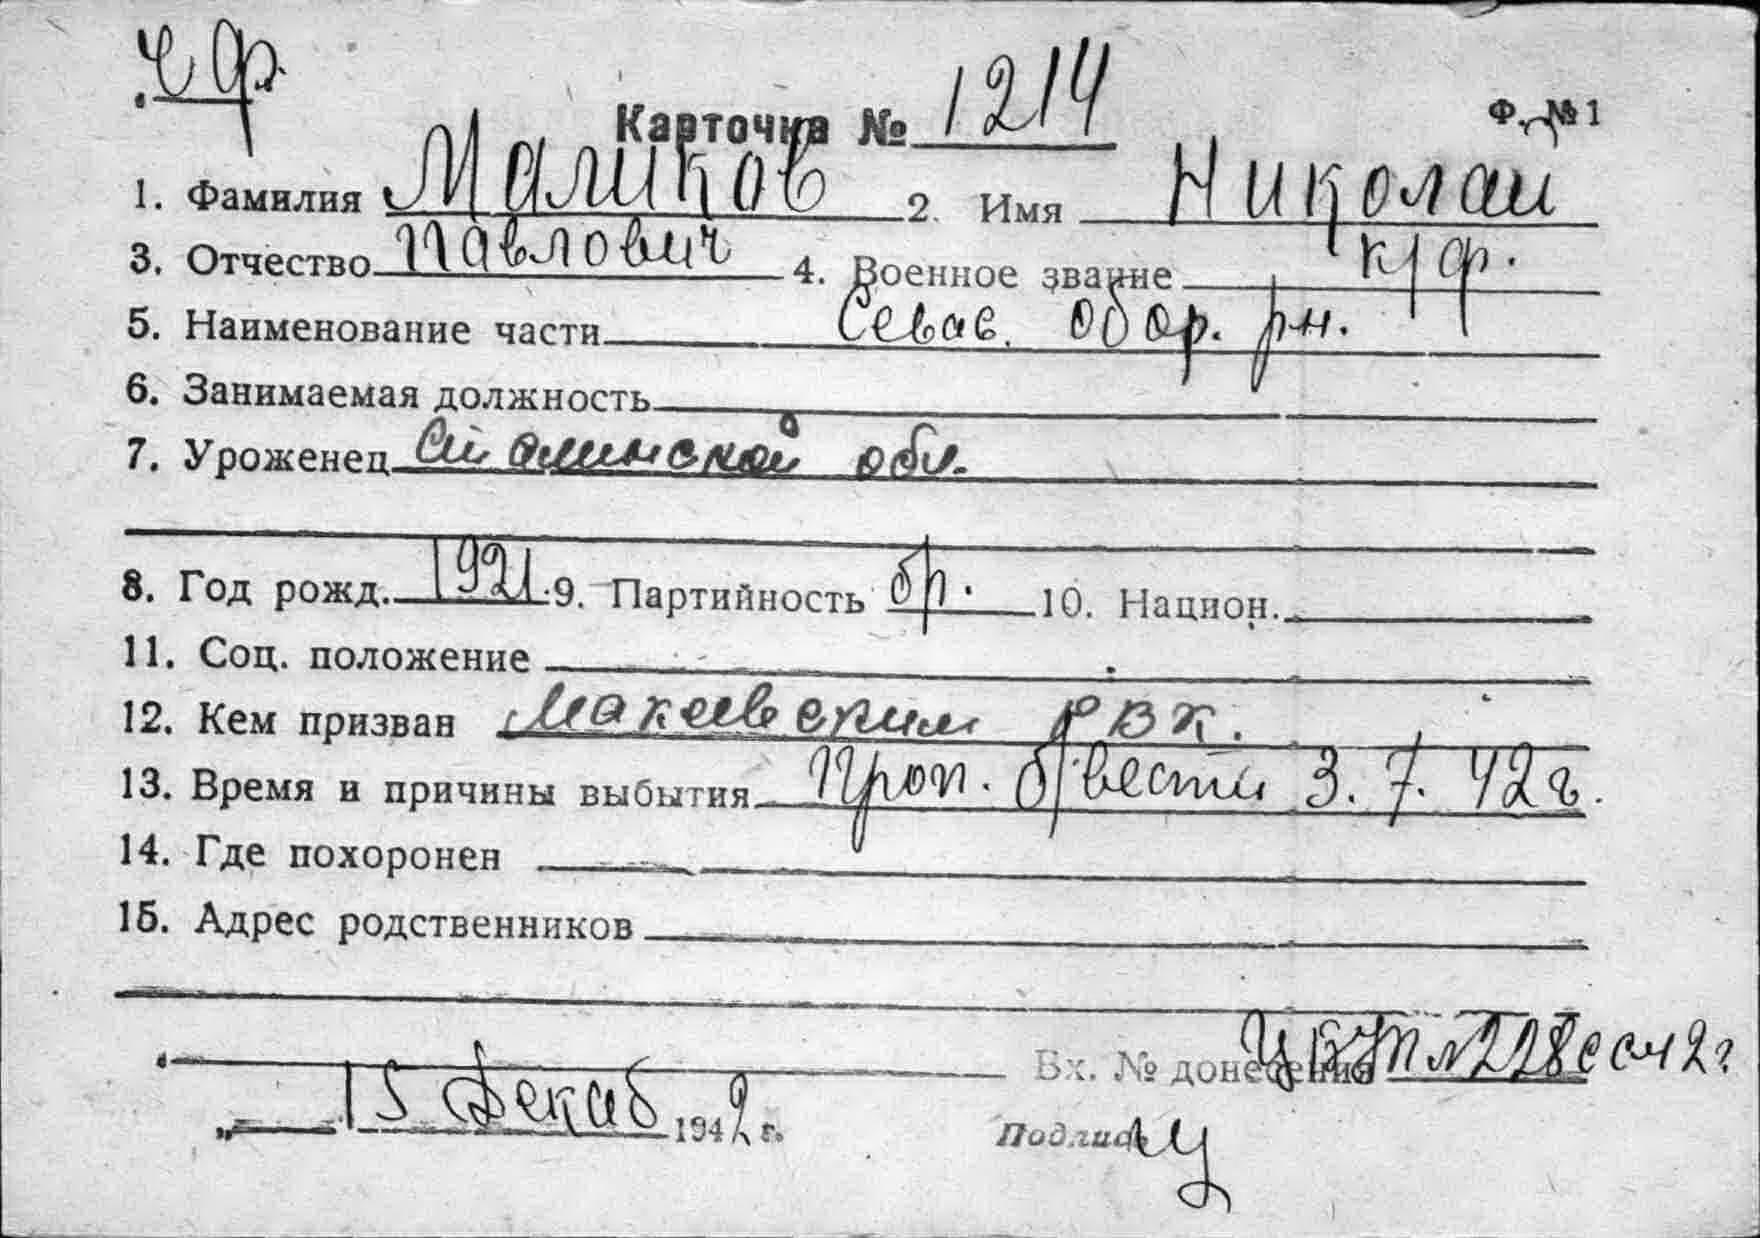 ч ф
Карточка № 1214
Ф. № 1
1. Фамилия Маликов 2. Имя Николай
3. Отчество Павлович 4. Военное звание к/ф.
5. Наименование части Севас. обор. рн.
6. Занимаемая должность
7. Уроженец Сталинской обл.
8. Год рожд. 1921 9. Партийность бп. 10. Национ.
11. Соц. положение
12. Кем призван Макеевским РВК.
13. Время и причины выбытия Проп. б/вести 3. 7. 42 г.
14. Где похоронен
15. Адрес родственников
Вх. № донесения №228сс 42г
„ 15 Декаб 1942 г.
Подпись